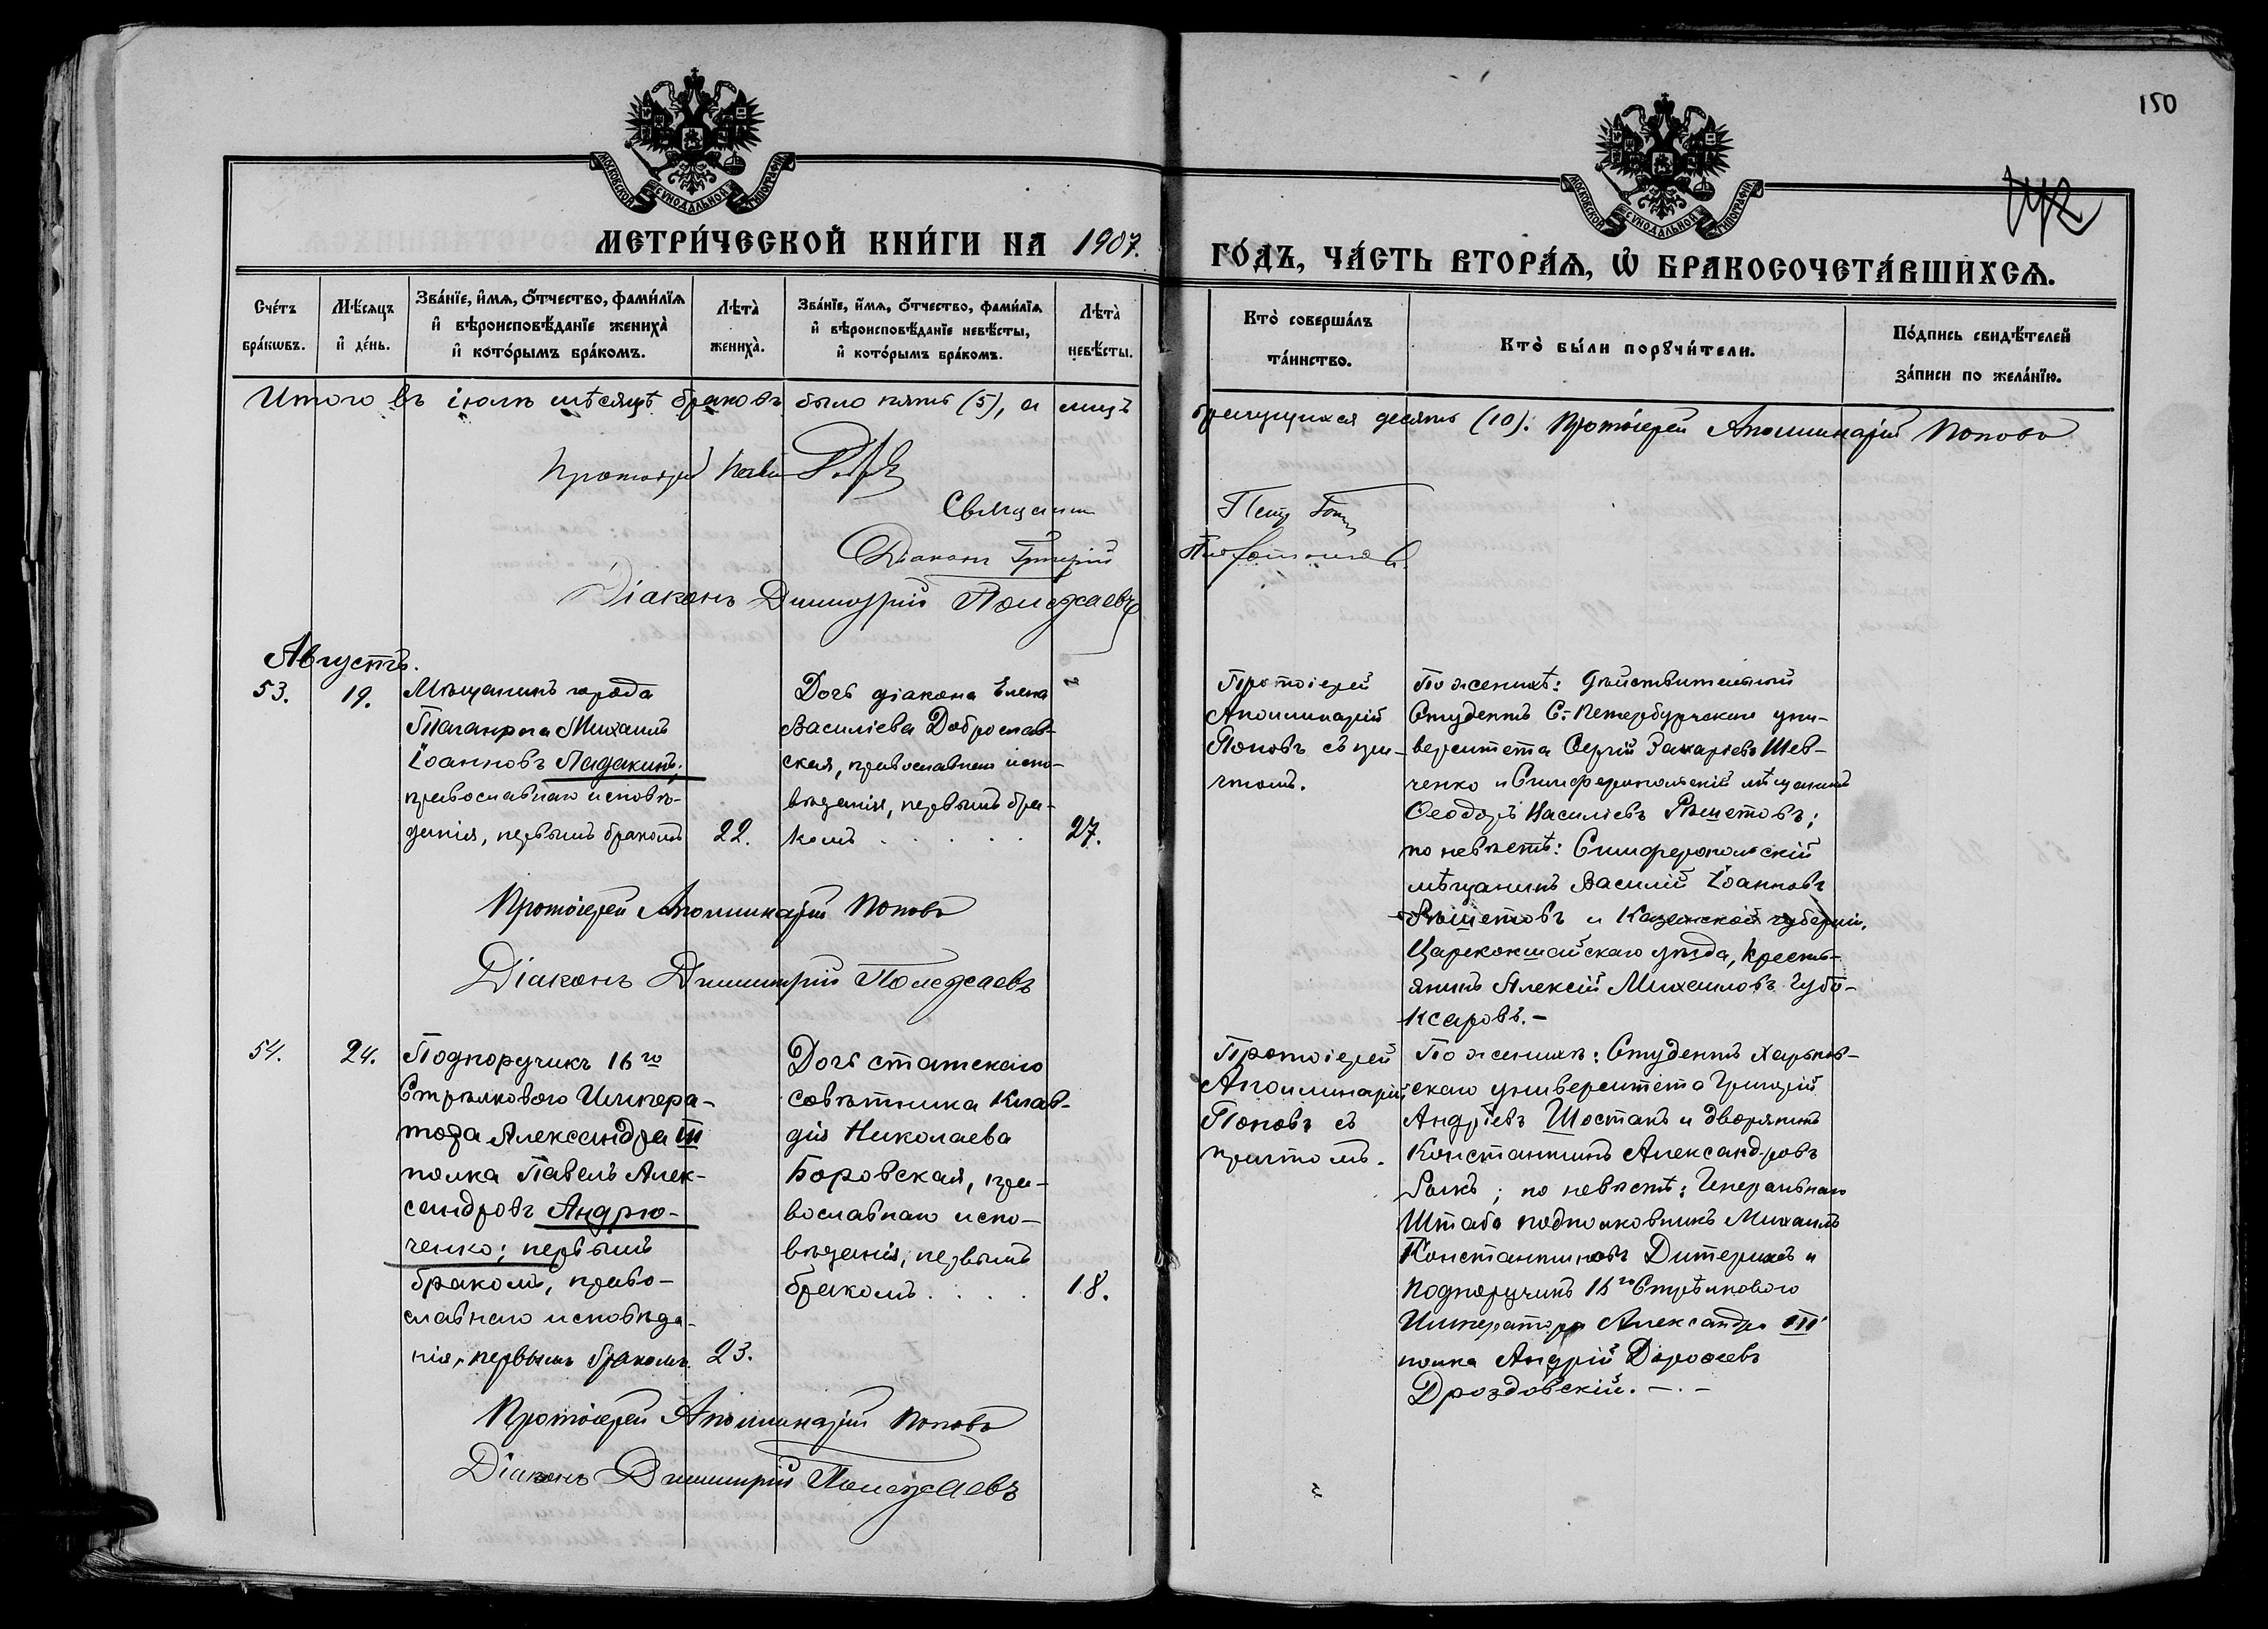 150
МОСКОВСКОЙ СѴНОДАЛЬНОЙ ТИПОГРАФІИ
МОСКОВСКОЙ СѴНОДАЛЬНОЙ ТИПОГРАФІИ
МЕТРИ́ЧЕСКОЙ КНИ́ГИ НА 1907.
ГО́ДЪ, ЧА́СТЬ ВТОРА́Ѧ, Ѡ БРАКОСОЧЕТА́ВШИХСѦ.
Сче́тъ
бра́кѡвъ.
Мѣ́сяцъ
и де́нь.
Зва́нїе, и́мѧ, ѻ́тчество, фами́лїѧ
и вѣроисповѣ́данїе жениха̀
и кото́рымъ бра́комъ.
Лѣта̀
жениха̀.
Зва́нїе, и́мѧ, ѻ́тчество, фами́лїѧ
и вѣроисповѣ́данїе невѣ́сты,
и кото́рымъ бра́комъ.
Лѣта̀
невѣ́сты.
Кто̀ соверша́лъ
та́инство.
Кто̀ бы́ли порꙋчи́тели.
По́дпись свидѣ́телей
за́писи по жела́нїю.
Итого въ іюлѣ мѣсяцѣ браковъ было пять (5), а лицъ
брачущихся десять (10). Протоіерей Аполлинарій Поповъ
Протоіерей
Священник
Діаконъ Григорій
Діаконъ Димитрій Полежаевъ
Августъ.
53.
19.
Мѣщанинъ города
Таганрога Михаилъ
Іоанновъ Ладакинъ,
православнаго исповѣ-
данія, первымъ бракомъ
22.
Дочь діакона Елена
Василіева Доброслав-
ская, православнаго испо-
вѣданія, первымъ бра-
комъ . . . . .
27.
Протоіерей
Аполлинарій
Поповъ съ при-
чтомъ.
По женихѣ: дѣйствительный
Студентъ С.-Петербургскаго уни-
верситета Сергій Захаріевъ Шев-
ченко и Симферопольскій мѣщанинъ
Ѳеодоръ Василіевъ Рѣшетовъ;
по невѣстѣ: Симферопольскій
мѣщанинъ Василій Іоанновъ
Рѣшетовъ и Казанской губерніи,
Царевокшайскаго уѣзда, кресть-
янинъ Алексій Михаиловъ Чубо-
ксаровъ.-
Протоіерей Аполлинарій Поповъ
Діаконъ Димитрій Полежаевъ
54.
24.
Подпоручикъ 16го
Стрѣлковаго Импера-
тора Александра III
полка Павелъ Алек-
сандровъ Андрю-
ченко; первымъ
бракомъ, право-
славнаго исповѣда-
нія, первымъ бракомъ.
23.
Дочь статскаго
совѣтника Клав-
дія Николаева
Боровская, пра-
вославнаго испо-
вѣданія, первымъ
бракомъ . . . .
18.
Протоіерей
Аполлинарій
Поповъ съ
причтомъ.
По женихѣ: Студентъ Харьков-
скаго университета Григорій
Андріевъ Шостакъ и дворянинъ
Константинъ Александровъ
по невѣстѣ: Генеральнаго
Штаба подполковникъ Михаилъ
Константиновъ Дитерихсъ и
Подпоручикъ 16го Стрѣлковаго
Императора Александра III
полка Андрій Дороѳеевъ
Дроздовскій. -.-
Протоіерей Аполлинарій Поповъ
Діаконъ Димитрій Полежаевъ